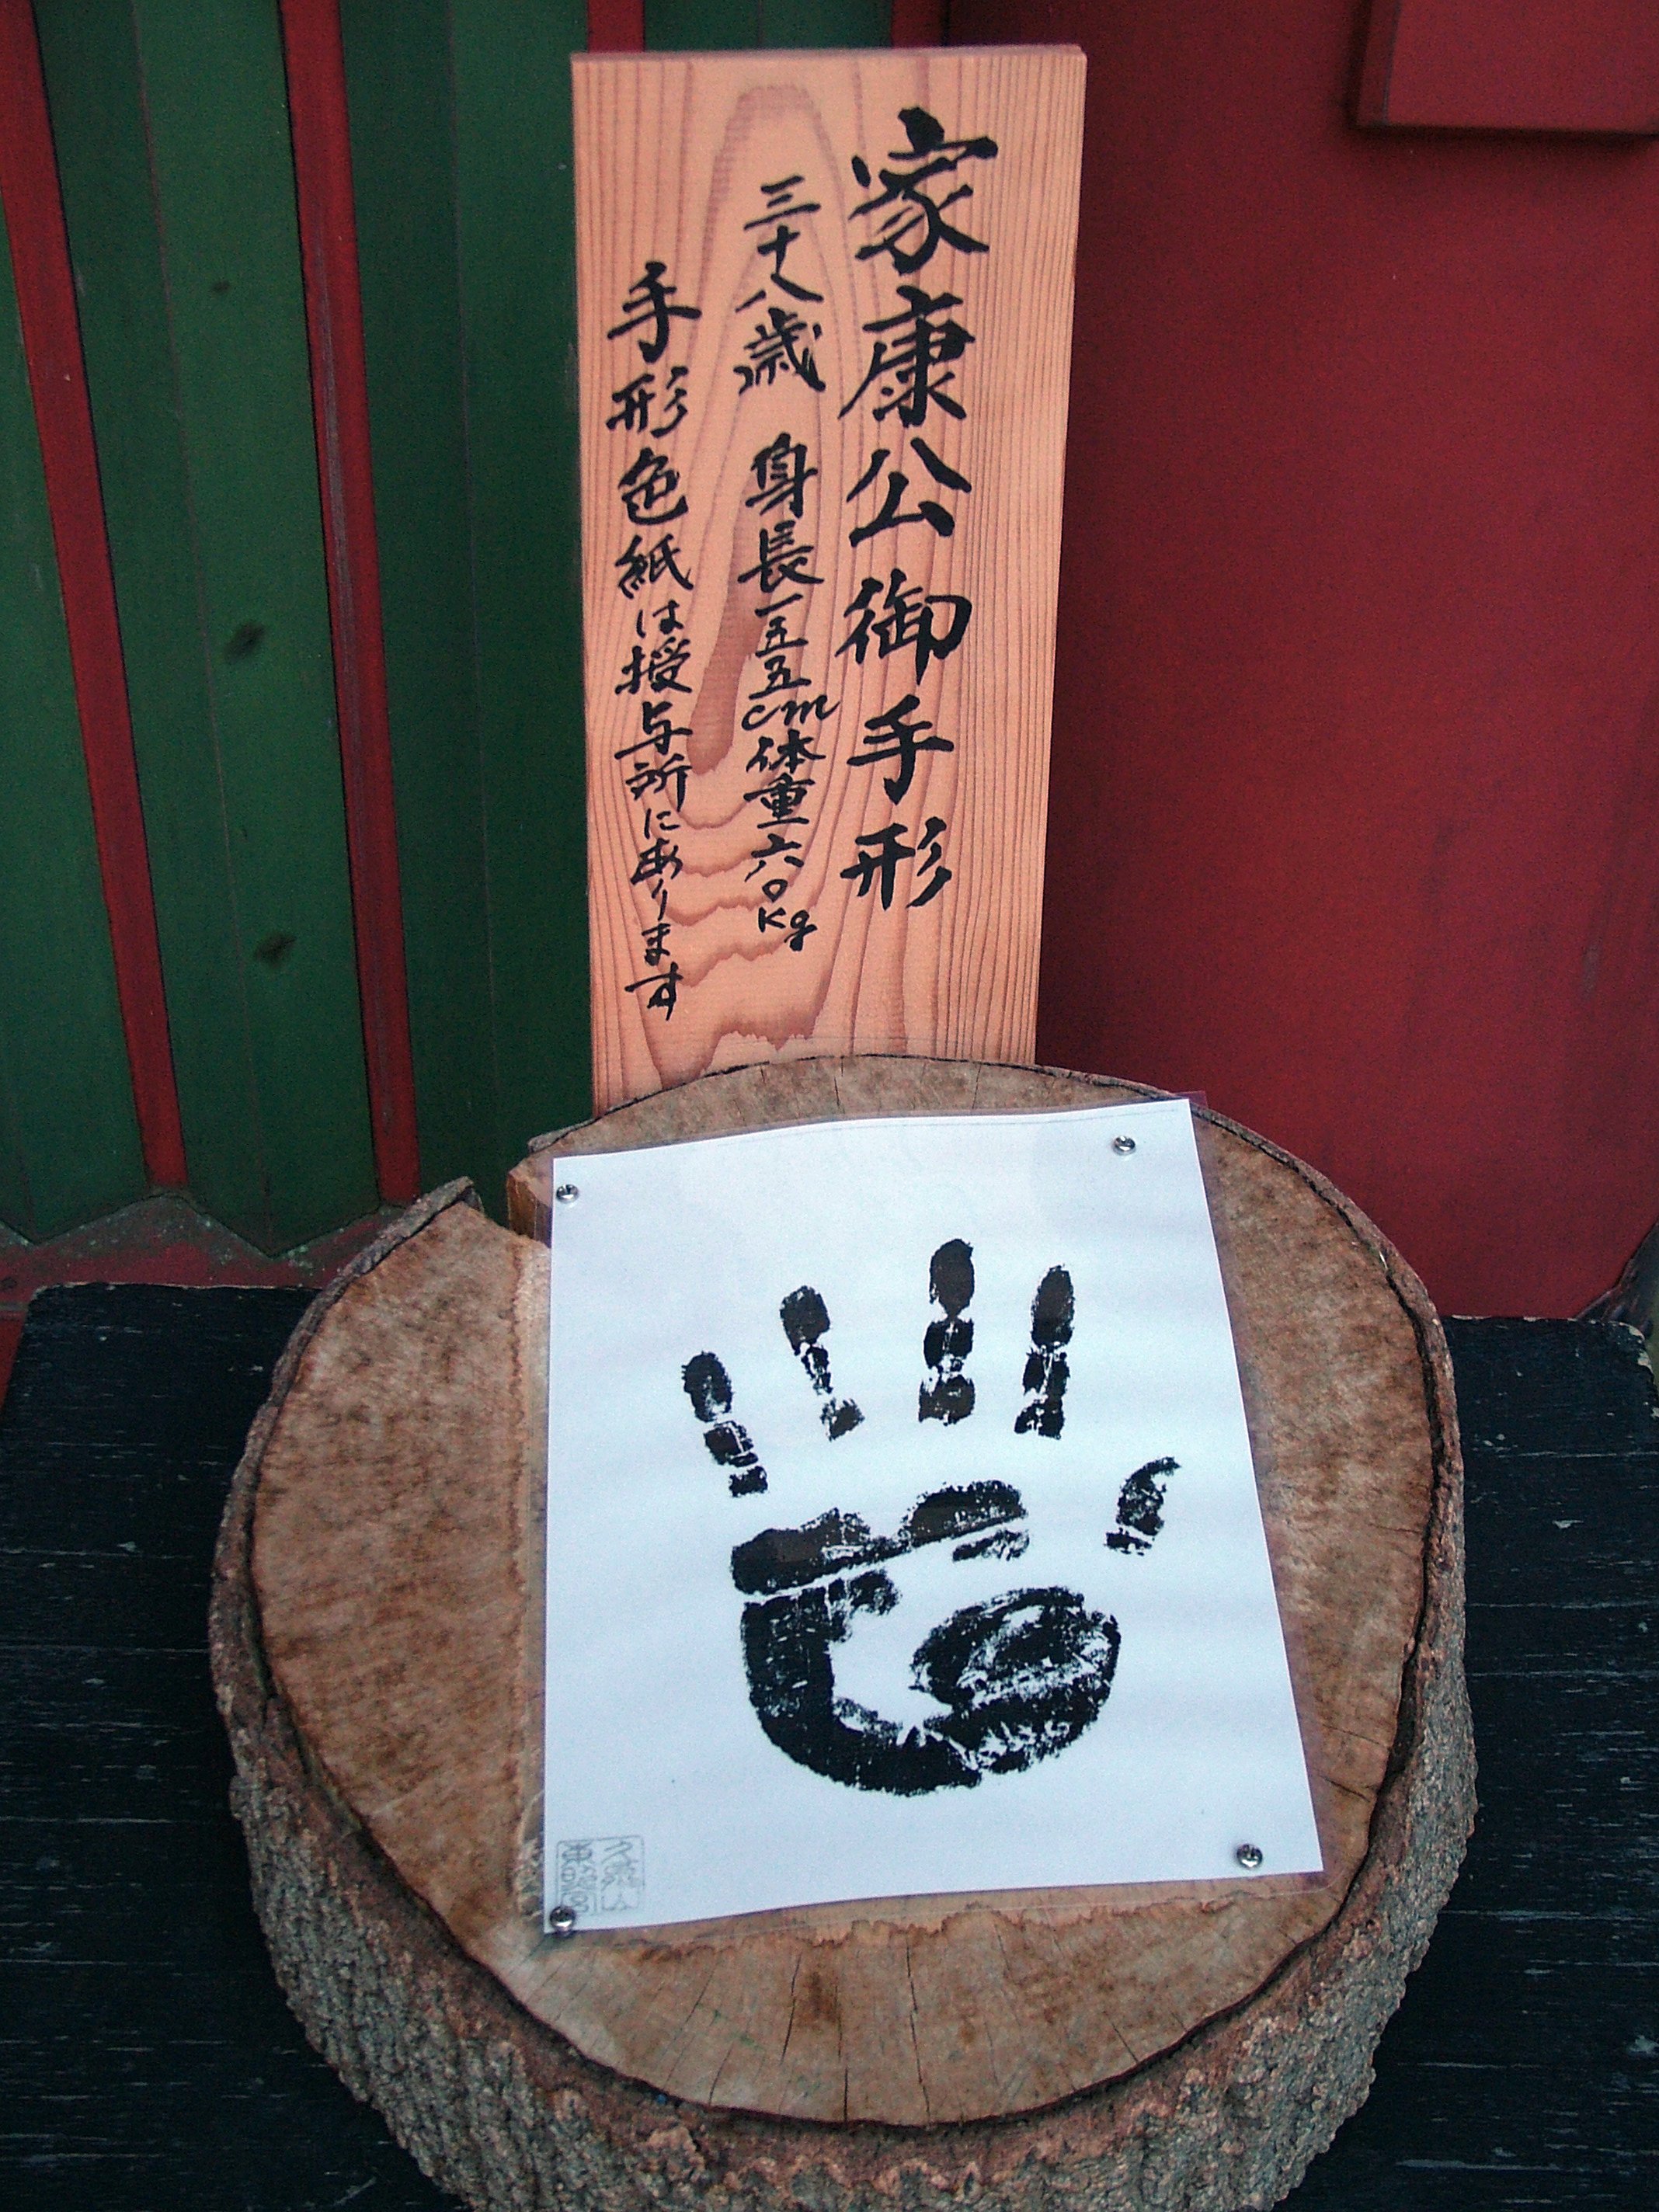 家康公御手形
三十八歳 身長一五五cm体重六〇kg
手形色紙は授与所にあります
久能山
東照宮